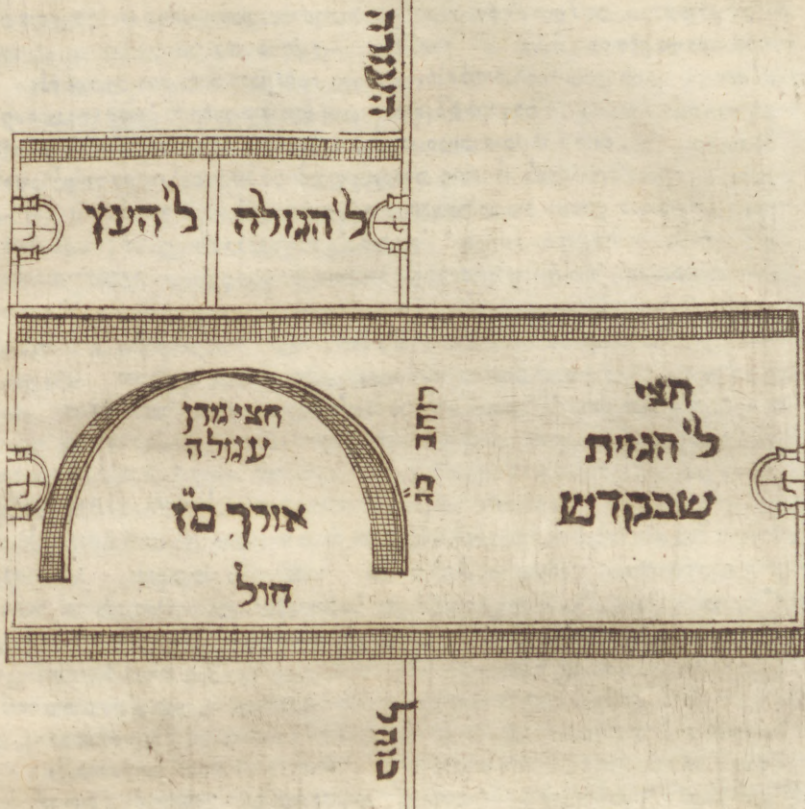 העזרה
ל' הגולה
ל' העץ
חצי
ל' הגזית
שבקדש
רוחב כג
חצי גורן
עגולה
אורך מ"ז
חול
כותל